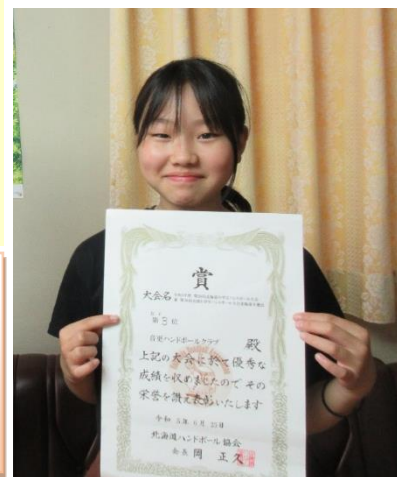 賞
大会名
第3位
自東ハンドボールクラブ
殿
上記の大会に於て優秀な
成績を収めましたのでその
栄誉を讃え表彰いたします
令和5年6月25日
北海道ハンドボール協会
会長 岡 正久